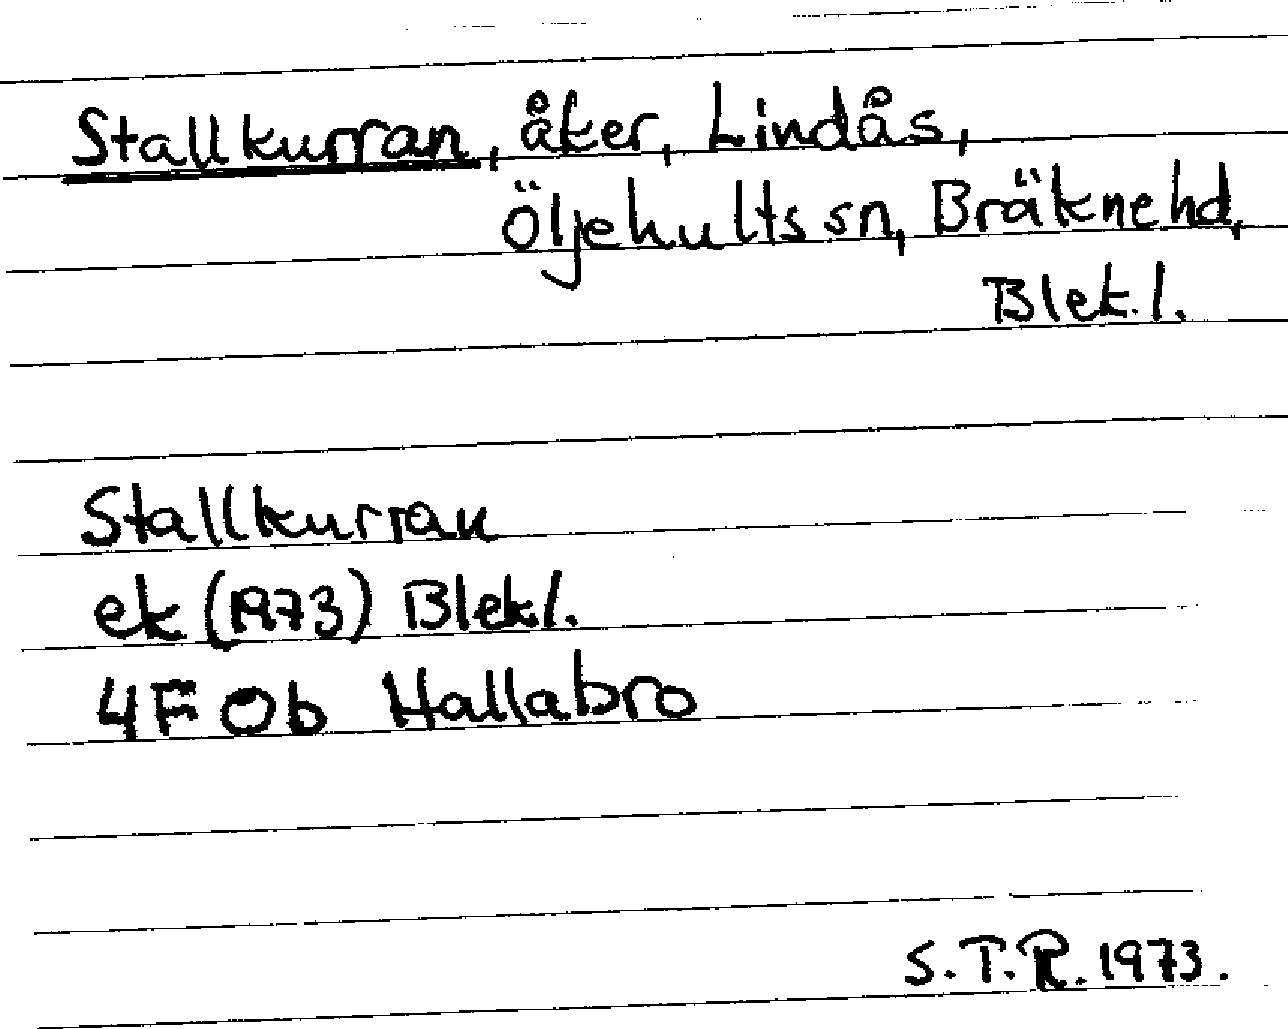 Stallkurran, åker, Lindås,
Öljehults sn, Bräkne hd,
Blek. l.
Stallkurran
ek (1973) Blek l.
4F 0b Hallabro
S.T.R. 1973.